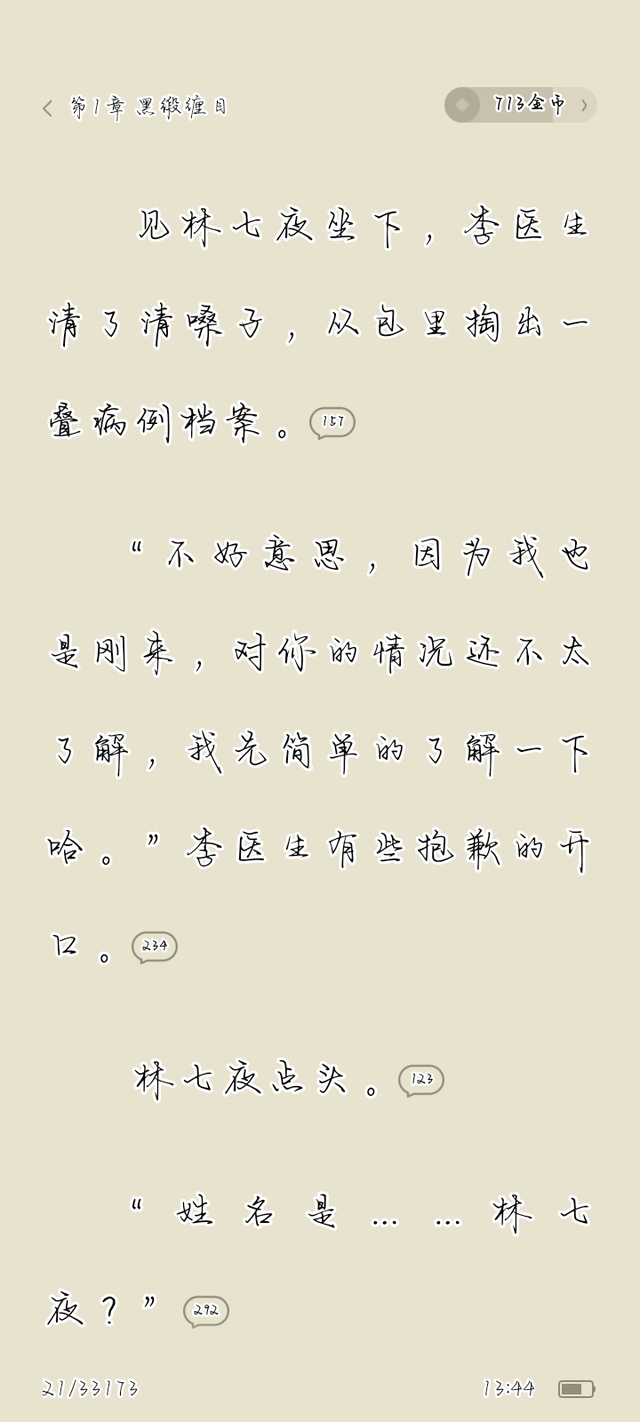 第1章 黑缎缠目
713金币
见林七夜坐下，李医生
清了清嗓子，从包里掏出一
叠病例档案。157
“不好意思，因为我也
是刚来，对你的情况还不太
了解，我先简单的了解一下
哈。”李医生有些抱歉的开
口。234
林七夜点头。123
“姓名是……林七
夜？”292
21/33173
13:44